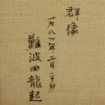 群像
一九八八年二月二十日
難波田龍起